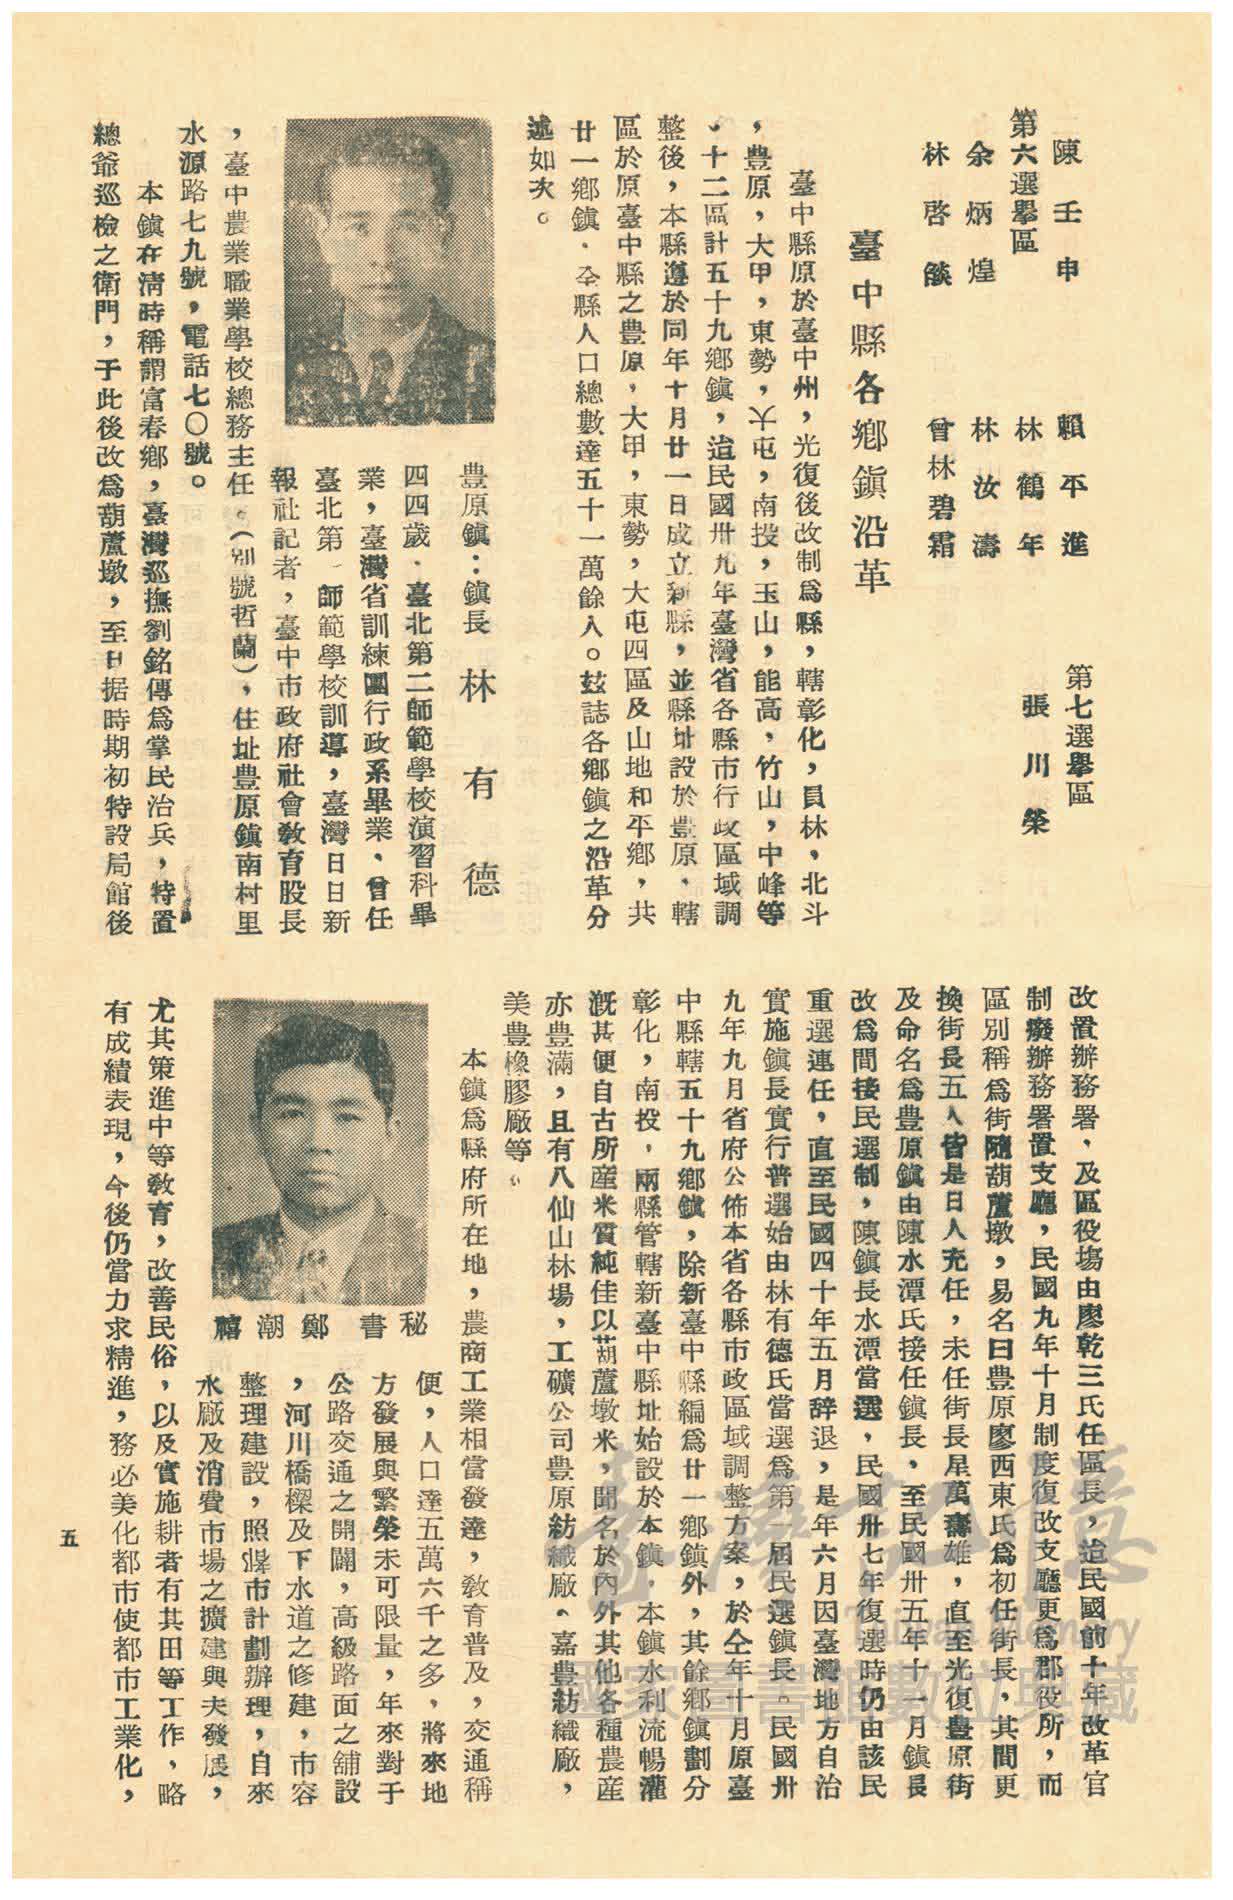 陳壬申
賴平進
第七選舉區
第六選舉區
林鶴年
張川榮
余炳煌
林汝濤
林啓
曾林碧霜
臺中縣各鄉鎭沿革
臺中縣原於臺中州，光復後改制爲縣，轄彰化，員林，北斗
，豊原，大甲，東勢，大屯，南投，玉山，能高，竹山，中峰等
，十二區計五十九鄉鎭，迨民國卅九年臺灣省各縣市行政區域調
整後，本縣遵於同年十月廿一日成立新縣，並縣址設於豊原，轄
區於原臺中縣之豊原，大甲，東勢，大屯四區及山地和平鄉，共
廿一鄉鎭．全縣人口總數達五十一萬餘人。玆誌各鄉鎭之沿革分
述如次。
豊原鎭：鎭長　林有德
四四歲．臺北第二師範學校演習科畢
業，臺灣省訓練團行政系畢業、曾任
臺北第一師範學校訓導，臺灣日日新
報社記者，臺中市政府社會敎育股長
，臺中農業職業學校總務主任。（別號哲蘭），住址豊原鎭南村里
水源路七九號，電話七〇號。
本鎭在淸時稱謂富春鄉，臺灣巡撫劉銘傳爲掌民治兵，特置
總爺巡檢之衛門，于此後改爲葫蘆墩，至日据時期初特設局館後
改置辦務署，及區役塲由廖乾三氏任區長，迨民國前十年改革官
制廢辦務署置支廳，民國九年十月制度復改支廳更爲郡役所，而
區別稱爲街隨葫蘆墩，易名曰豊原廖西東氏爲初任街長，其間更
換街長五人皆是日人充任，末任街長星萬壽雄，直至光復豊原街
及命名爲豊原鎭由陳水潭氏接任鎭長，至民國卅五年十一月鎭長
改爲間接民選制，陳鎭長水潭當選，民國卅七年復選時仍由該民
重選連任，直至民國四十年五月辞退，是年六月因臺灣地方自治
實施鎭長實行普選始由林有德氏當選爲第一屆民選鎭長。民國卅
九年九月省府公佈本省各縣市政區域調整方案，於仝年十月原臺
中縣轄五十九鄉鎭，除新臺中縣編爲廿一鄉鎭外，其餘鄉鎭劃分
彰化，南投，兩縣管轄新臺中縣址始設於本鎭，本鎭水利流暢灌
漑甚便自古所産米質純佳以葫蘆墩米，聞名於內外其他各種農産
亦豊滿，且有八仙山林場，工礦公司豊原紡織廠，嘉豊紡織廠，
美豊橡膠廠等。
本鎭爲縣府所在地，農商工業相當發達，敎育普及，交通稱
便，人口達五萬六千之多，將來地
方發展與繁榮未可限量，年來對于
公路交通之開闢，高級路面之舖設
，河川橋樑及下水道之修建，市容
整理建設，照準市計劃辦理，自來
水廠及消費市場之擴建與夫發展，
秘書　鄭潮禧
尤其策進中等敎育，改善民俗，以及實施耕者有其田等工作，略
有成績表現，今後仍當力求精進，務必美化都市使都市工業化，
五
臺灣記憶
Taiwan Memory
國家圖書館數位典藏